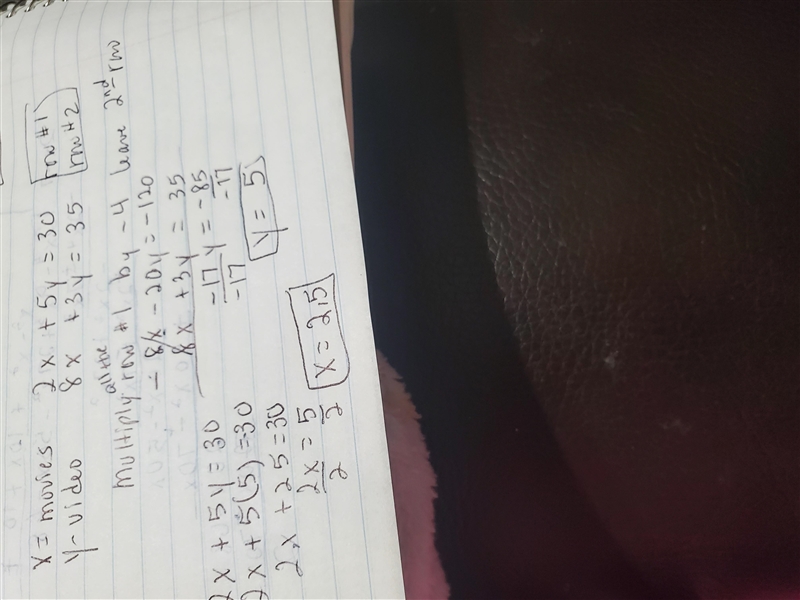 x = movies 2x + 5y = 30 row #1
y - video 8x + 3y = 35 row #2
all the
Multiply row #1 by -4 leave 2nd row
- 8x - 20y = -120
8x + 3y = 35
-17y = -85
-17 -17
y = 5
2x + 5y = 30
2x + 5(5) = 30
2x + 25 = 30
2x = 5
2 2
x = 2.5